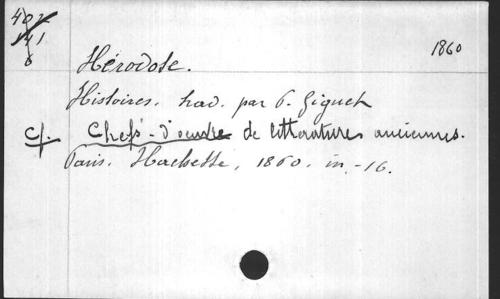 402
141
6
1860
Hérodote.
Histoires. trad. par P. Giguet
Cf. Chefs-d'oeuvre de littératures anciennes.
Paris. Hachette, 1860. in-16.